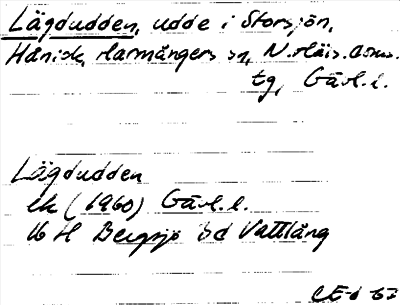 Lägdudden, udde i Storsjön,
Hånick, Harmångers sn, N. Häls. doms.
tg, Gävl. l.
Lägdudden
ek (1960) Gävl. l.
16 H Bergsjö bd Vattlång
CE-d 67